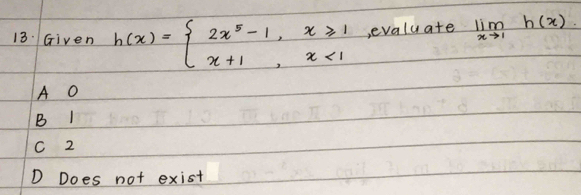 13. Given h(x) = { 2x⁵ - 1, x ≥ 1 , evaluate lim x→1 h(x).
x + 1 , x < 1
A 0
B 1
C 2
D Does not exist